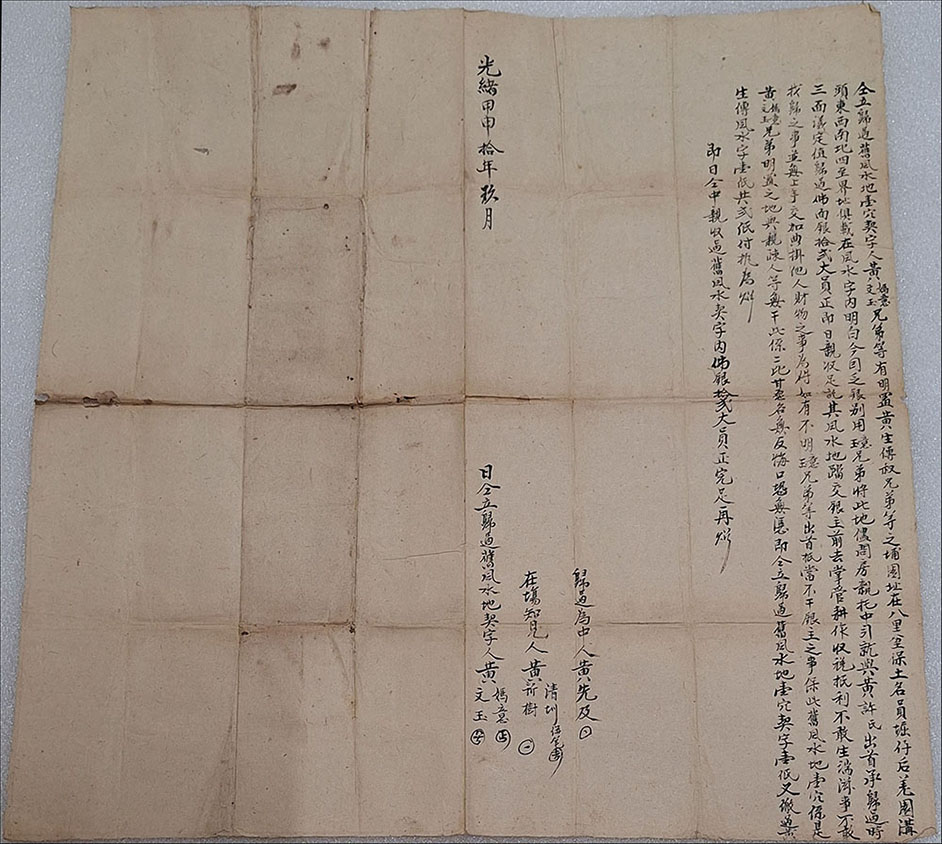 仝立歸過舊風水地壹穴契字人黃媽意文玉兄弟等有明置黃生傳叔兄弟等之埔園址在八里坌保土名員堀仔后尾園溝
頭東西南地四至界址俱載在風水字內明白今因乏銀别用玉意兄弟將此地儘問房親托中引就與黃許氏出首承歸過時
三面議定值歸過佛面銀拾弍大員正即日親收足訖其風水地踏交銀主前去掌管耕作收稅抵利不敢生端滋事不敢
找歸之事並無上手交加典掛他人財物之事為碍如有不明玉意兄弟等出首抵當不干銀主之事保此舊風水地壹穴係是
黃媽意文玉兄弟明置之地與親疎人等無干此係二比甘愿各無反悔口恐無憑即仝立歸過舊風水地壹穴契字壹紙又繳黃
生傳風水字壹紙共弍紙付执為炤
即日仝中親收過舊風水契字內佛銀拾弍大員正完足再炤
歸過為中人黃先及
在場知見人黃清圳 祈樹
光緒甲申拾年玖月 日仝立歸過舊風水地契字人黃媽意文玉